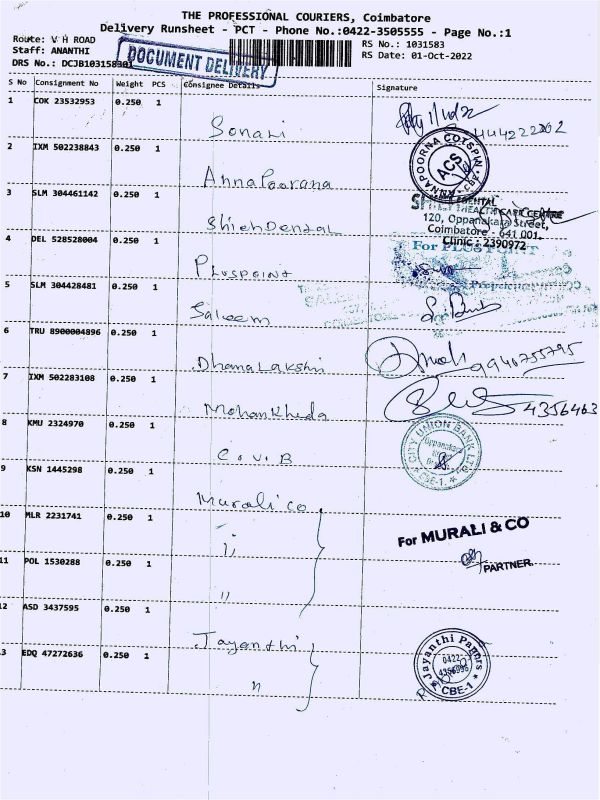 THE PROFESSIONAL COURIERS, Coimbatore
Delivery Runsheet - PCT - Phone No.:0422-3505555 - Page No.:1
Route: V H ROAD
RS No.: 1031583
Staff: ANANTHI
RS Date: 01-Oct-2022
DRS No.: DCJB103158301
DOCUMENT DELIVERY
S No Consignment No Weight PCS Consignee Details Signature
1 COK 23532953 0.250 1
Sonali
2 IXM 502238843 0.250 1
ANNAPOORNA COTSPIN
ACS
CBE
Annapoorana
3 SLM 304461142 0.250 1
DENTAL
HEALTH CARE CENTRE
120, Oppanakara Street,
Coimbatore - 641 001.
Clinic : 2390972
Shieh Dental
4 DEL 528528004 0.250 1
For PLUS POINT
Pluspoint
5 SLM 304428481 0.250 1
Saleem
6 TRU 8900004896 0.250 1
9940755795
DhanaLakshmi
7 IXM 502283108 0.250 1
4356463
Mohan Kheda
8 KMU 2324970 0.250 1
CITY UNION BANK LTD.
Oppanakara
CBE-1.
C.U.B
9 KSN 1445298 0.250 1
Murali co
10 MLR 2231741 0.250 1
For MURALI & CO
PARTNER.
11
11 POL 1530288 0.250 1
11
12 ASD 3437595 0.250 1
Jayanthi
13 EDQ 47272636 0.250 1
Jayanthi Papers
0422
CBE-1
11